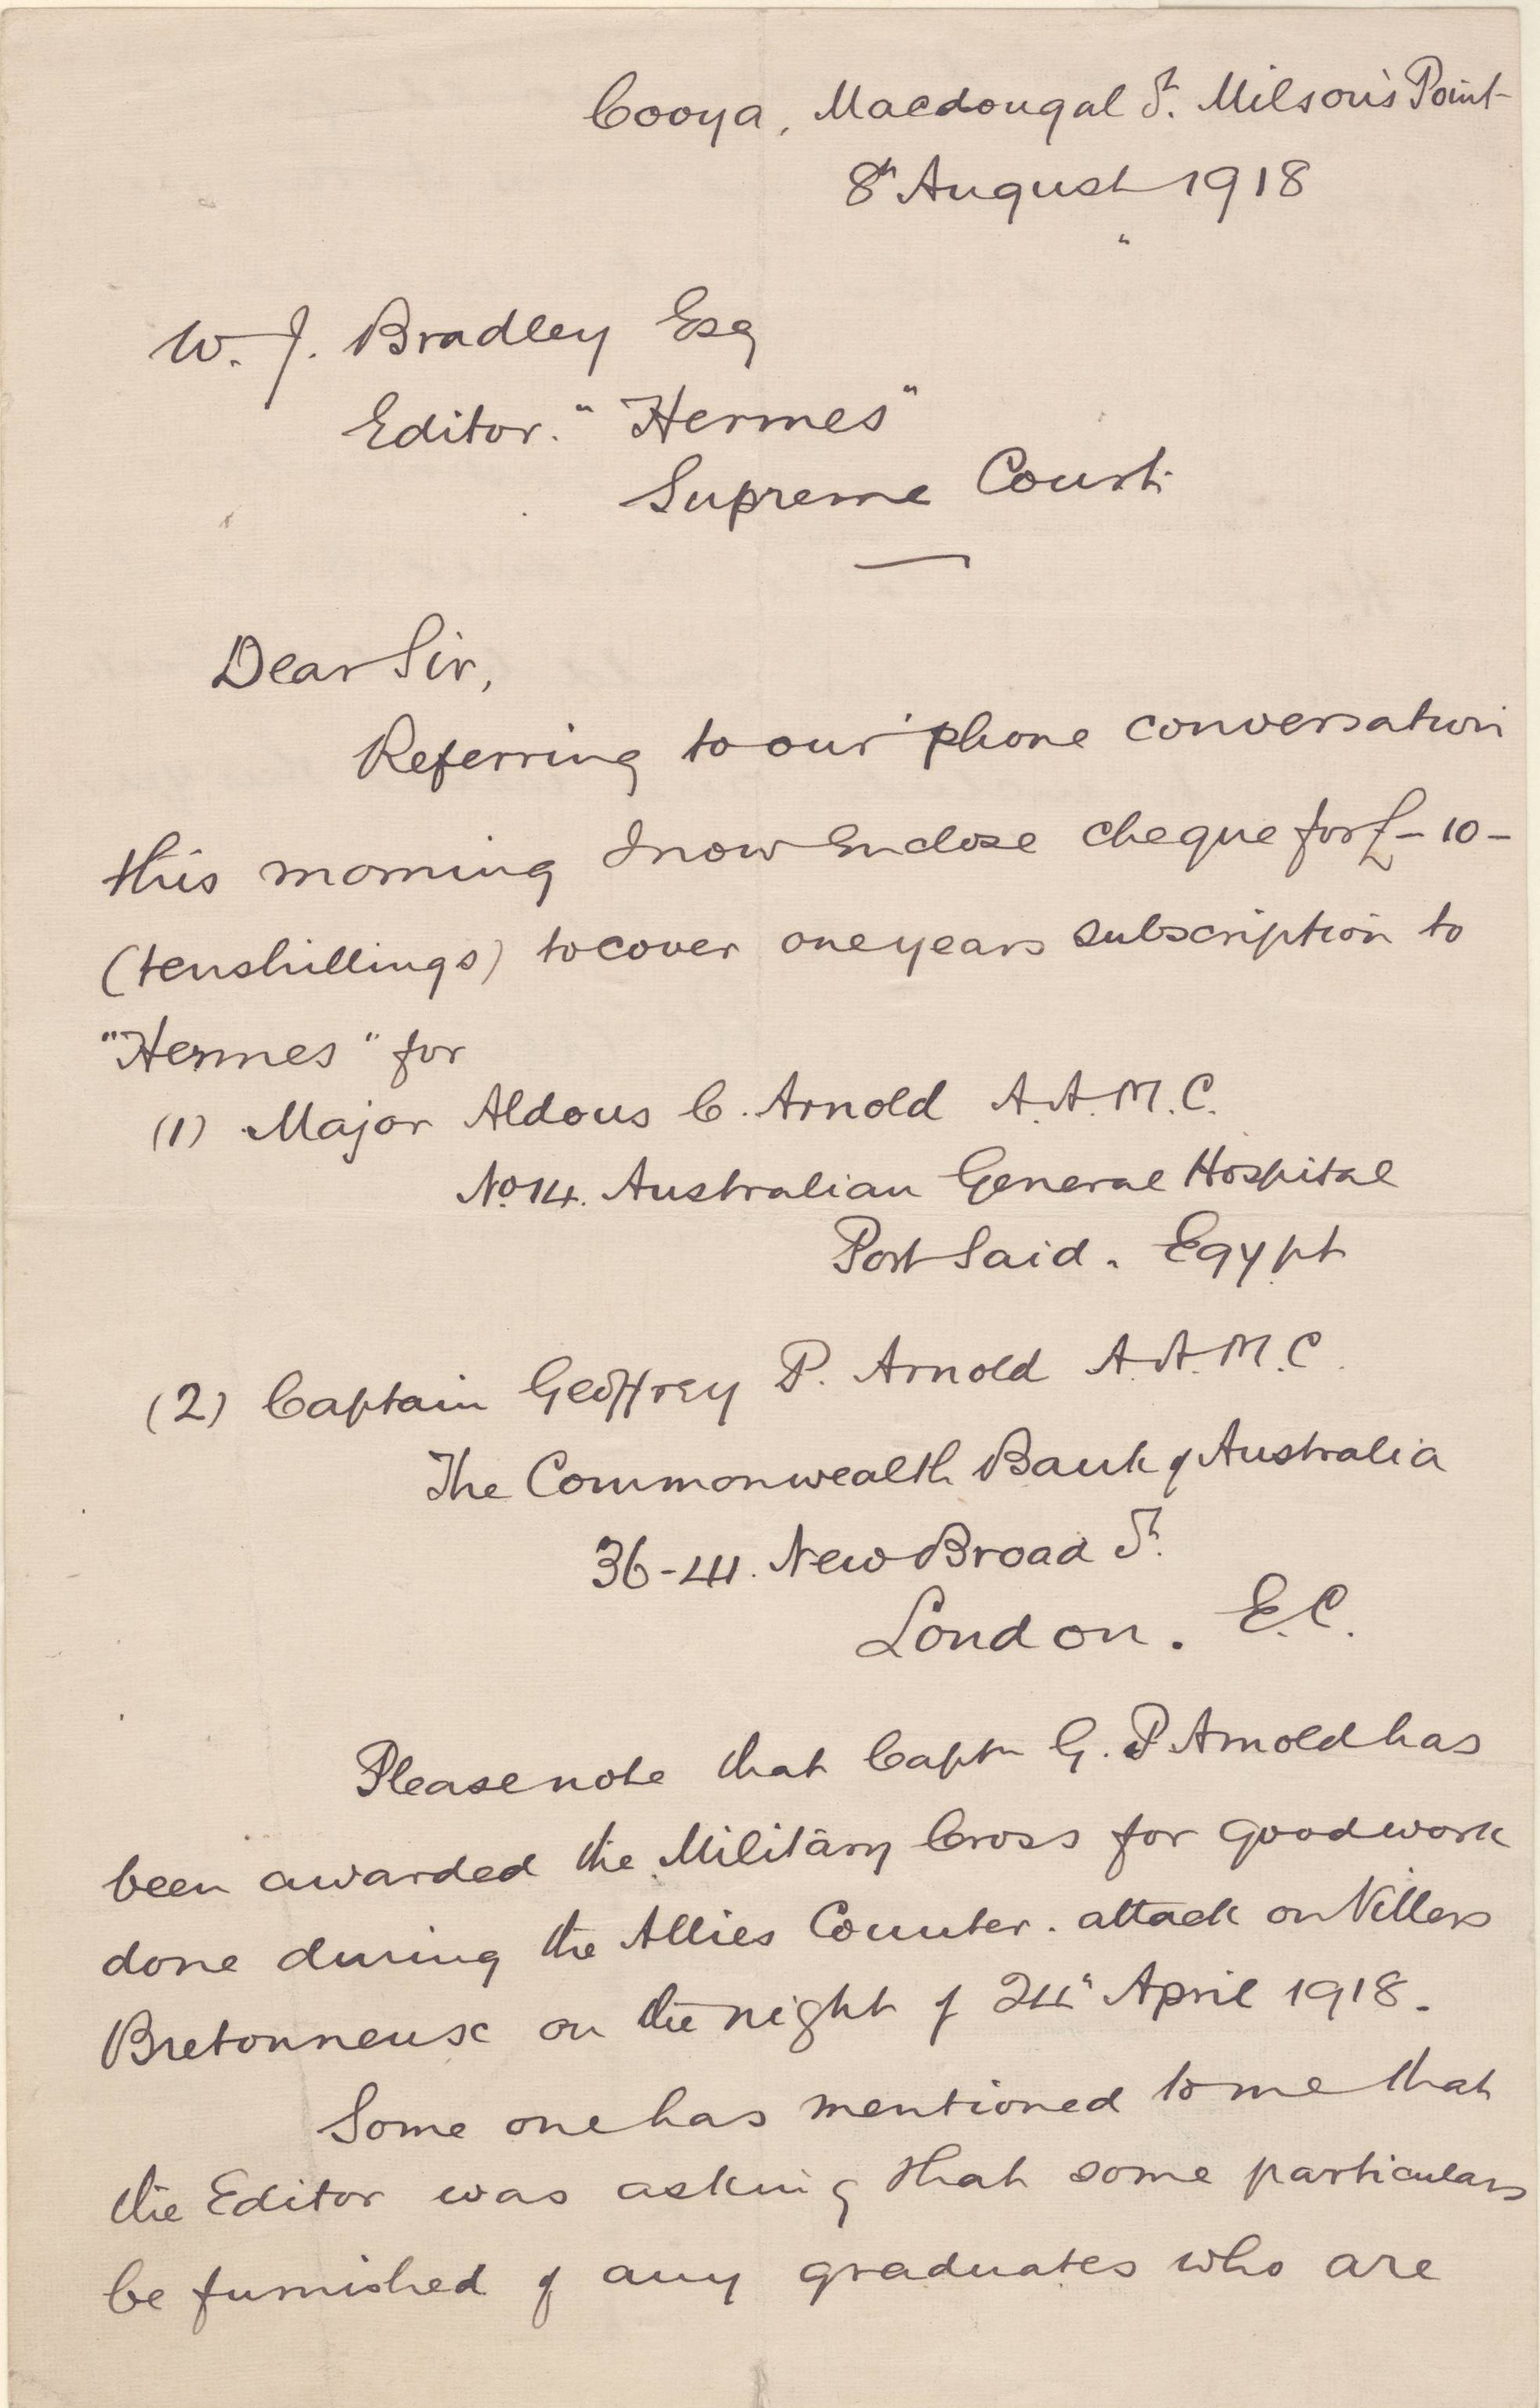 Cooya, Macdougal St. Milson's Point
8th August 1918
W. J. Bradley Esq
Editor. "Hermes"
Supreme Court.
Dear Sir,
Referring to our 'phone conversation
this morning I now enclose cheque for £-10-
(ten shillings) to cover one years subscription to
"Hermes" for
(1) Major Aldous C. Arnold A.A.M.C.
No 14. Australian General Hospital
Port Said. Egypt
(2) Captain Geoffrey P. Arnold A.A.M.C.
The Commonwealth Bank of Australia
36-41. New Broad St.
London. E.C.
Please note that Captn G. P. Arnold has
been awarded the Military Cross for good work
done during the Allies Counter-attack on Villers
Bretonneux on the night of 24th April 1918.
Some one has mentioned to me that
the Editor was asking that some particulars
be furnished of any graduates who are